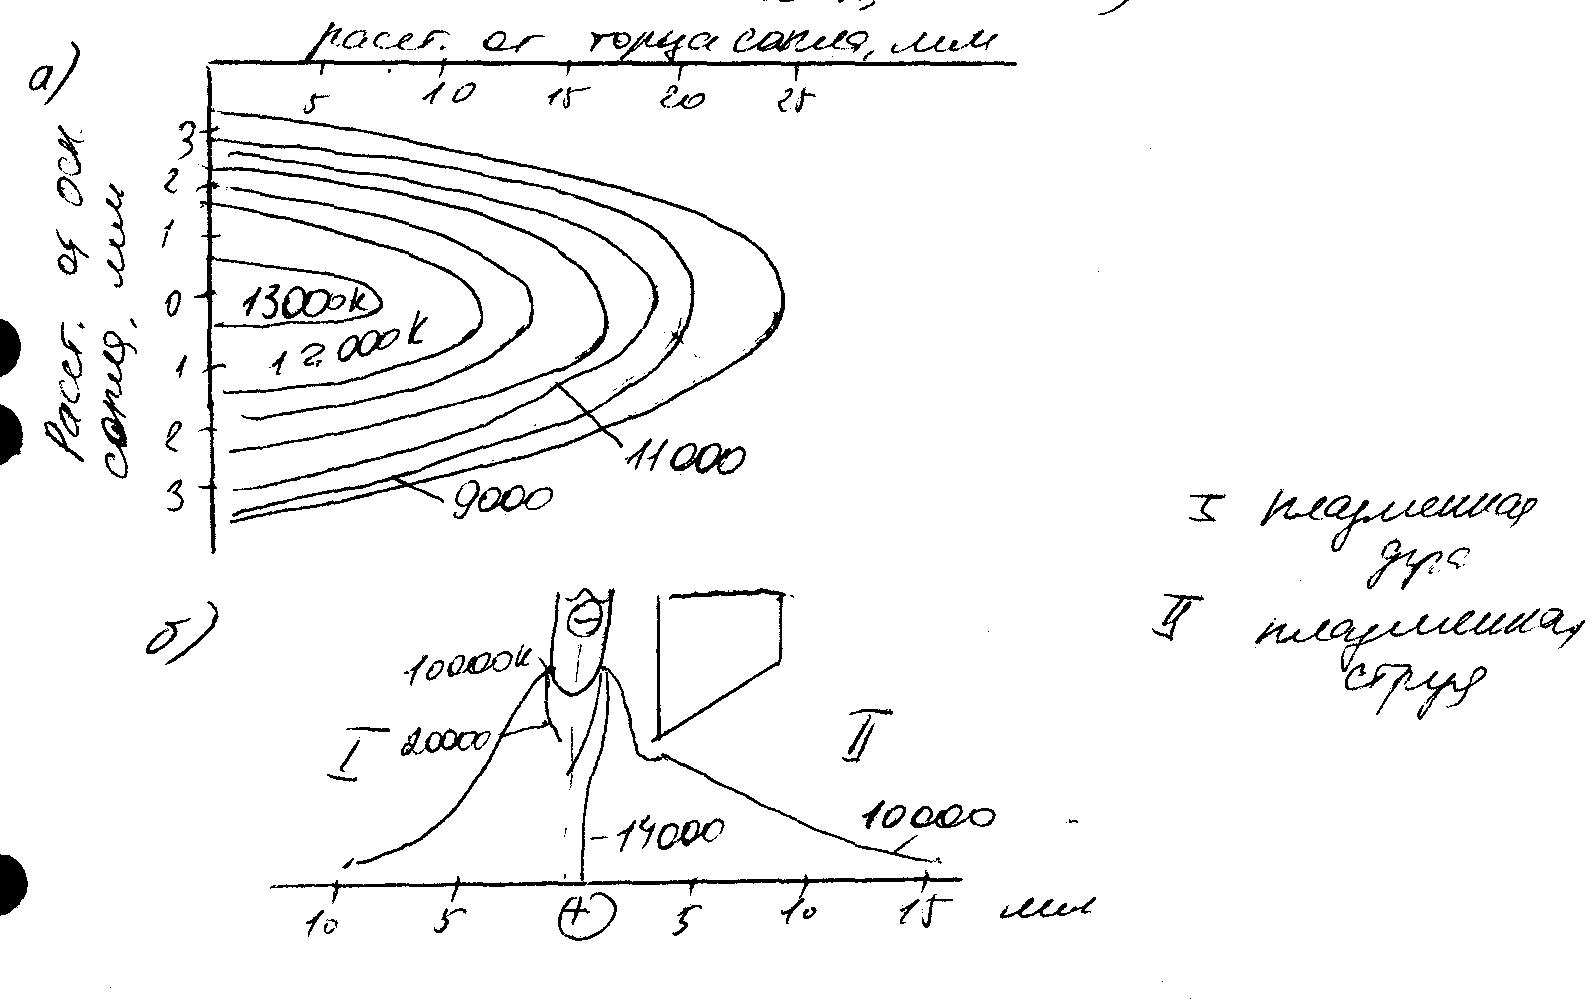 расст. от торца сопла, мм
а)
5 10 15 20 25
Расст. от оси
сопла, мм
3
2
1
0
1
2
3
13000К
12000К
11000
9000
I плазменная
дуга
II плазменная
струя
б)
10000К
I 20000
II
14000
10000
10 5 + 5 10 15 мм